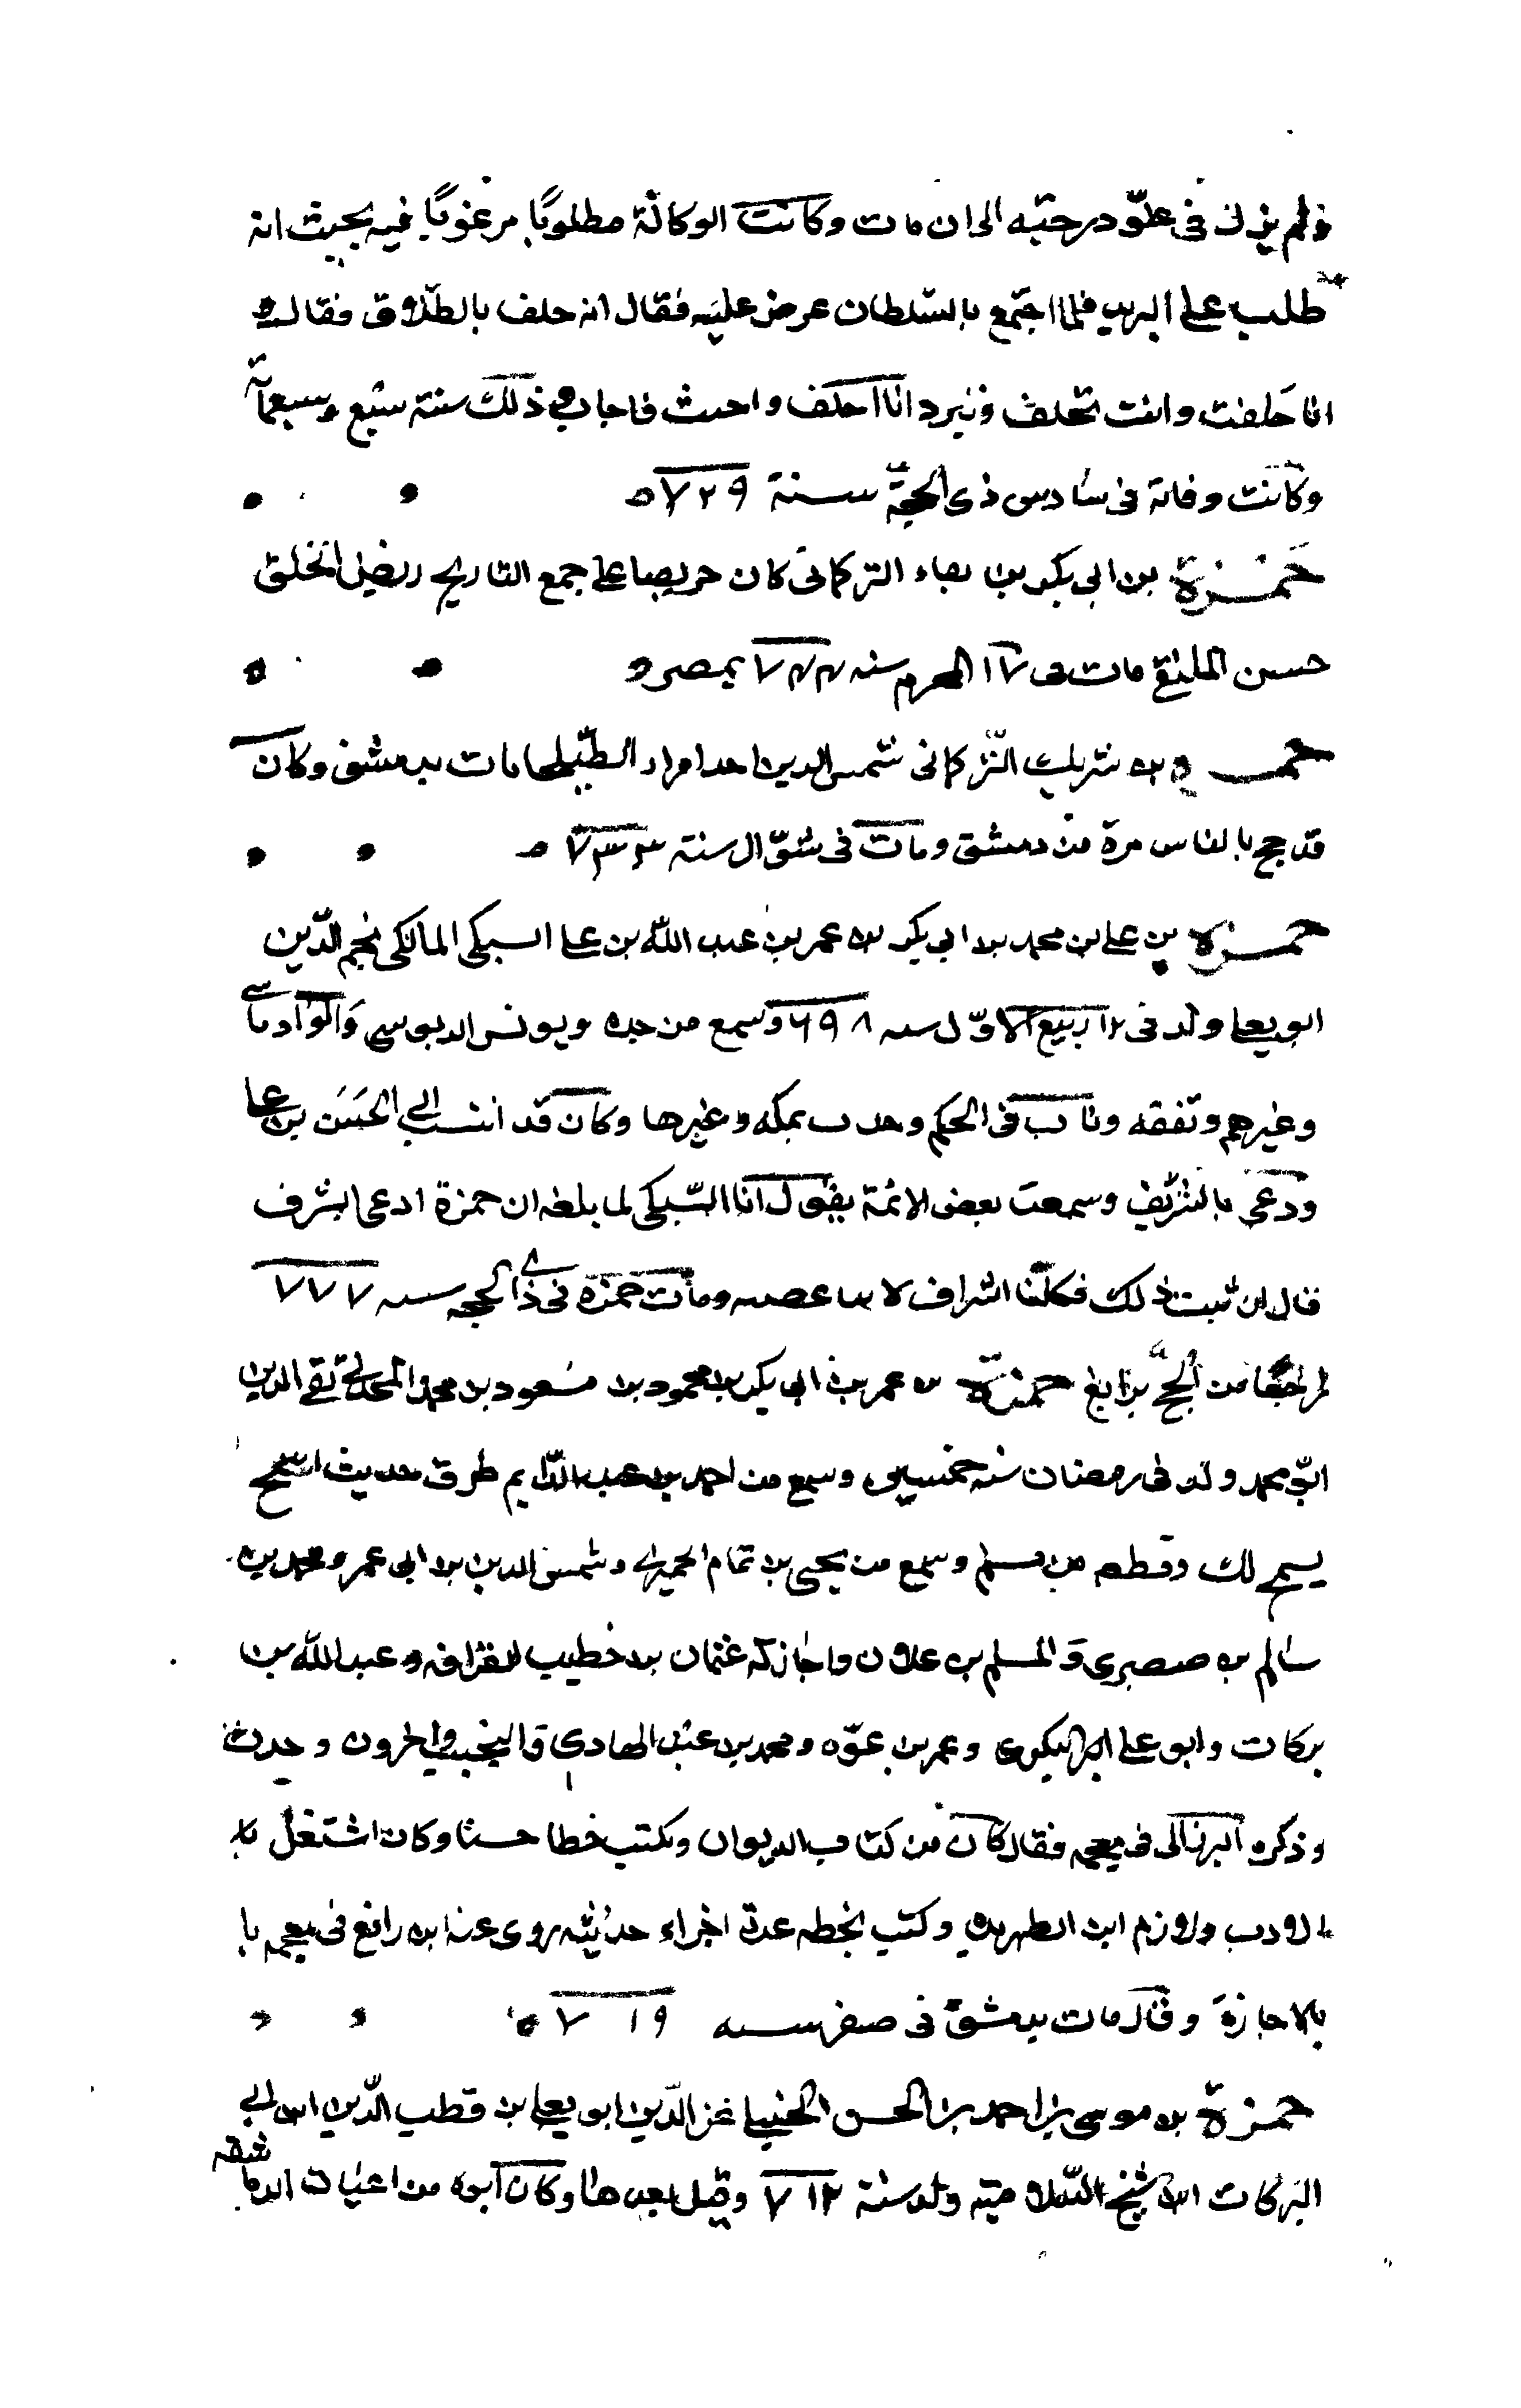 فلم يزل في علوّ درجته الى ان مات وكانت الوكالة مطلوبًا مرغوبًا فيه بحيث انه
طلب على البريد فلما اجتمع بالسّلطان عرض عليه فقال انه حلف بالطّلاق فقال له
انا حلفت وانت تحلف ونيرد انا احلف واحنث فاجاب وذلك سنة سبع وسبعمائة
وكانت وفاته في سادس ذي الحجّة سنة ٧٢٩ ه
حَمْزة بن ابي بكر بن التركماني كان حريصا على جمع التاريخ الخلق
حسن الملتقى مات في ١٧ المحرم سنه ٧٤٤ بمصر ه
حمزة بن شريك التّركماني شمس الدين احد امراء الطبلخا مات بدمشق وكان
قد حج بالناس مرة من دمشق ومات في شوّال سنة ٧٣٣ ه
حمزة بن علي بن محمد بن ابي بكر بن عمر بن عبد الله بن علي السبكي المالكي نجم الدّين
ابو يعلى ولد في ١٢ ربيع الاوّل سنه ٦٩٨ وسمع من جده ويونس الدبوسي والوادياشي
وغيرهم وتفقه وناب في الحكم وحدث بمكه وغيرها وكان قد انتسب الى الحَسَن بن علي
ودعي بالشريف وسمعت بعض الائمة يقول انا السّبكي لما بلغه ان حمزة ادعى الشرف
قال ان ثبت ذلك فكلّنا اشراف لاننا عصبته ومات حمزة في ذي الحجه سنه ٧٧٧
راجعًا من الحج برابغ حمزة بن عمر بن ابي بكر بن محمود بن مسعود بن محمد تقي الدين
ابو محمد ولد في رمضان سنة خمسين وسمع من احمد بن عبد الدّايم طرق حديث اسمح
يسمح لك وقطعه من مسلم وسمع من يحيى بن تمام الحميري وشمس الدين بن ابي عمر ومحمد بن
سالم بن صصرى والمسلم بن علان واجاز له عثمان بن خطيب القرافه وعبد الله بن
بركات وابو علي البكري وعمر بن عوّه ومحمد بن عبد الهادي والنجيب واخرون وحدث
وذكره البرزالي في معجمه فقال كان من كتاب الديوان ويكتب خطا حسنا وكان اشتغل با
بالادب ولازم ابن الظهير وكتب بخطه عدة اجزاء حديثيه روى عنه ابن رافع في معجمه با
بالاجازة وقال مات بدمشق في صفر سنه ٧١٩ ه
حمزة بن موسى بن احمد بن الحسن الحنبلي عز الدّين ابو يعلى بن قطب الدّين ابن ابي
البركات ابن شيخ السّلاميه ولد سنة ٧١٢ وقيل بعدها وكان ابوه من اعيان الدماشقه